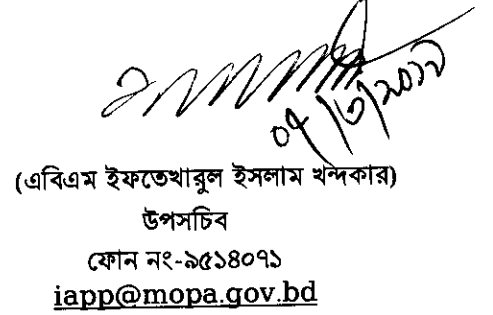 (এবিএম ইফতেখারুল ইসলাম খন্দকার)
উপসচিব
ফোন নং-৯৫১৪০৭১
iapp@mopa.gov.bd